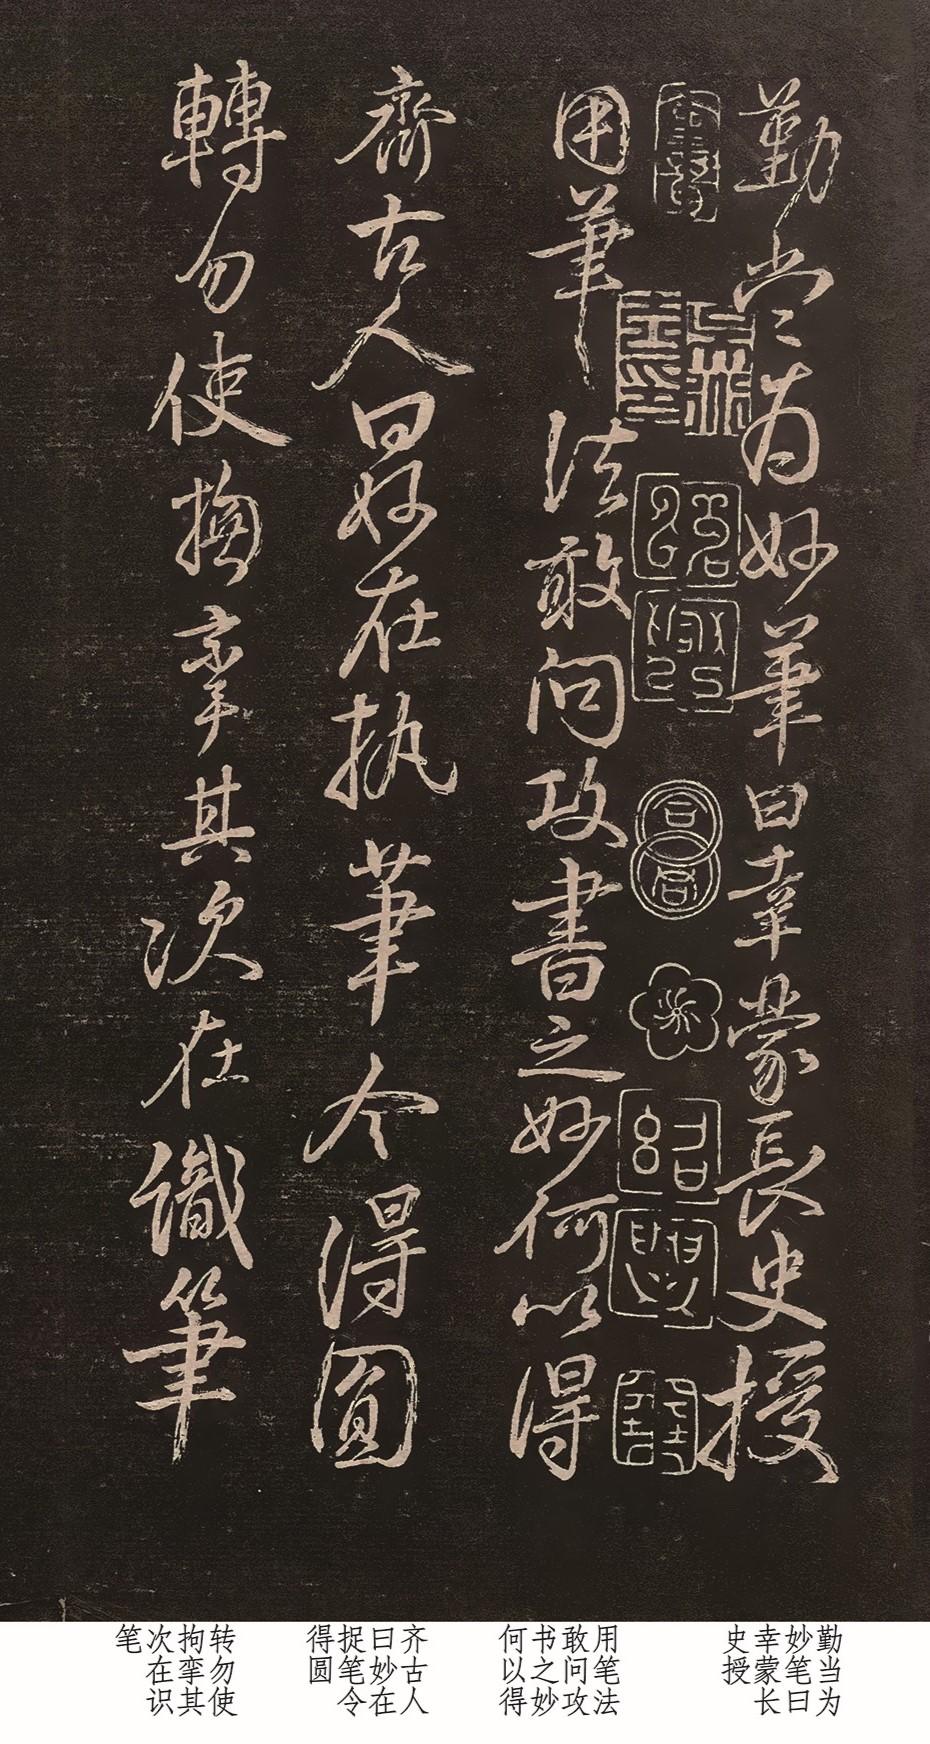 勤當為妙筆曰幸蒙長史授
用筆法敢问攻書之妙何以得
齊古人曰妙在执筆令得圓
轉勿使拘挛其次在識筆
勤当为
妙笔曰
幸蒙长
史授
用笔法
敢问攻
书之妙
何以得
齐古人
曰妙在
捉笔令
得圆
转勿使
拘挛其
次在识
笔